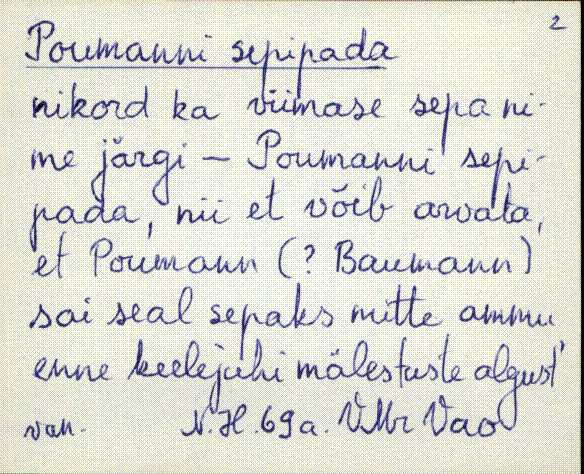 2
Poumanni sepipada
nikord ka viimase sepa ni-
me järgi – Poumanni sepi-
pada, nii et võib arvata,
et Poumann (? Baumann)
sai seal sepaks mitte ammu
enne keelejuhi mälestuste algust
van. N.H. 69 a. VMr Vao